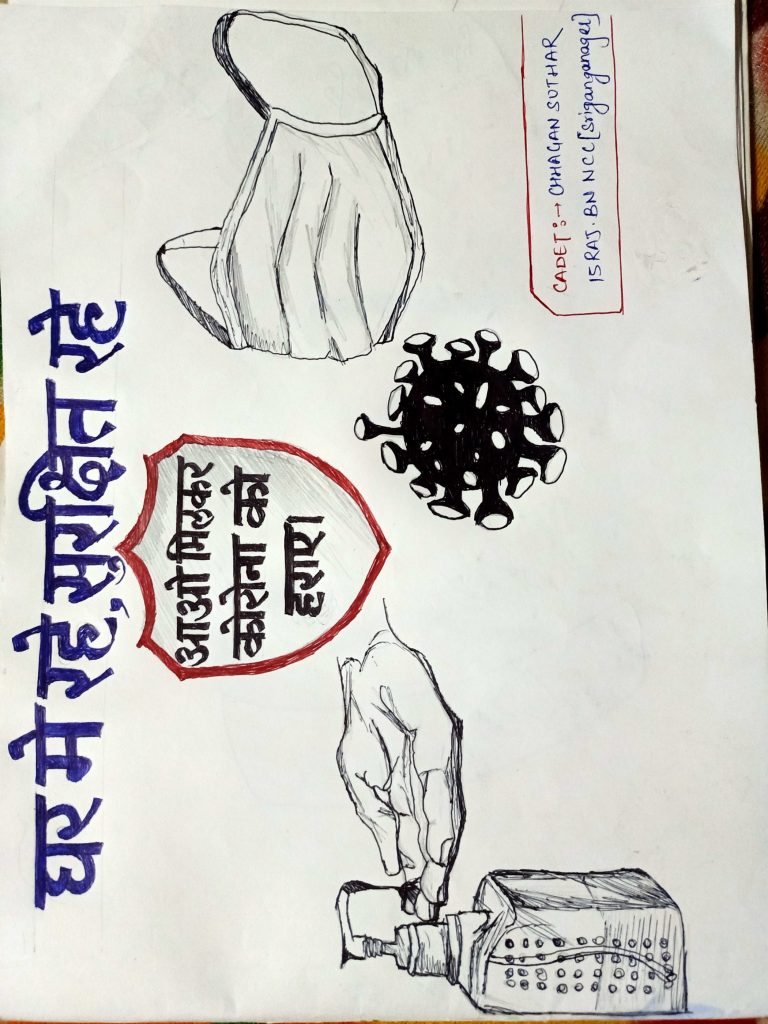 घर मे रहे, सुरक्षित रहे
आओ मिलकर
कोरोना को
हराए।
CADET:→ CHHAGAN SUTHAR
15 RAJ. BN NCC [Sriganganager]